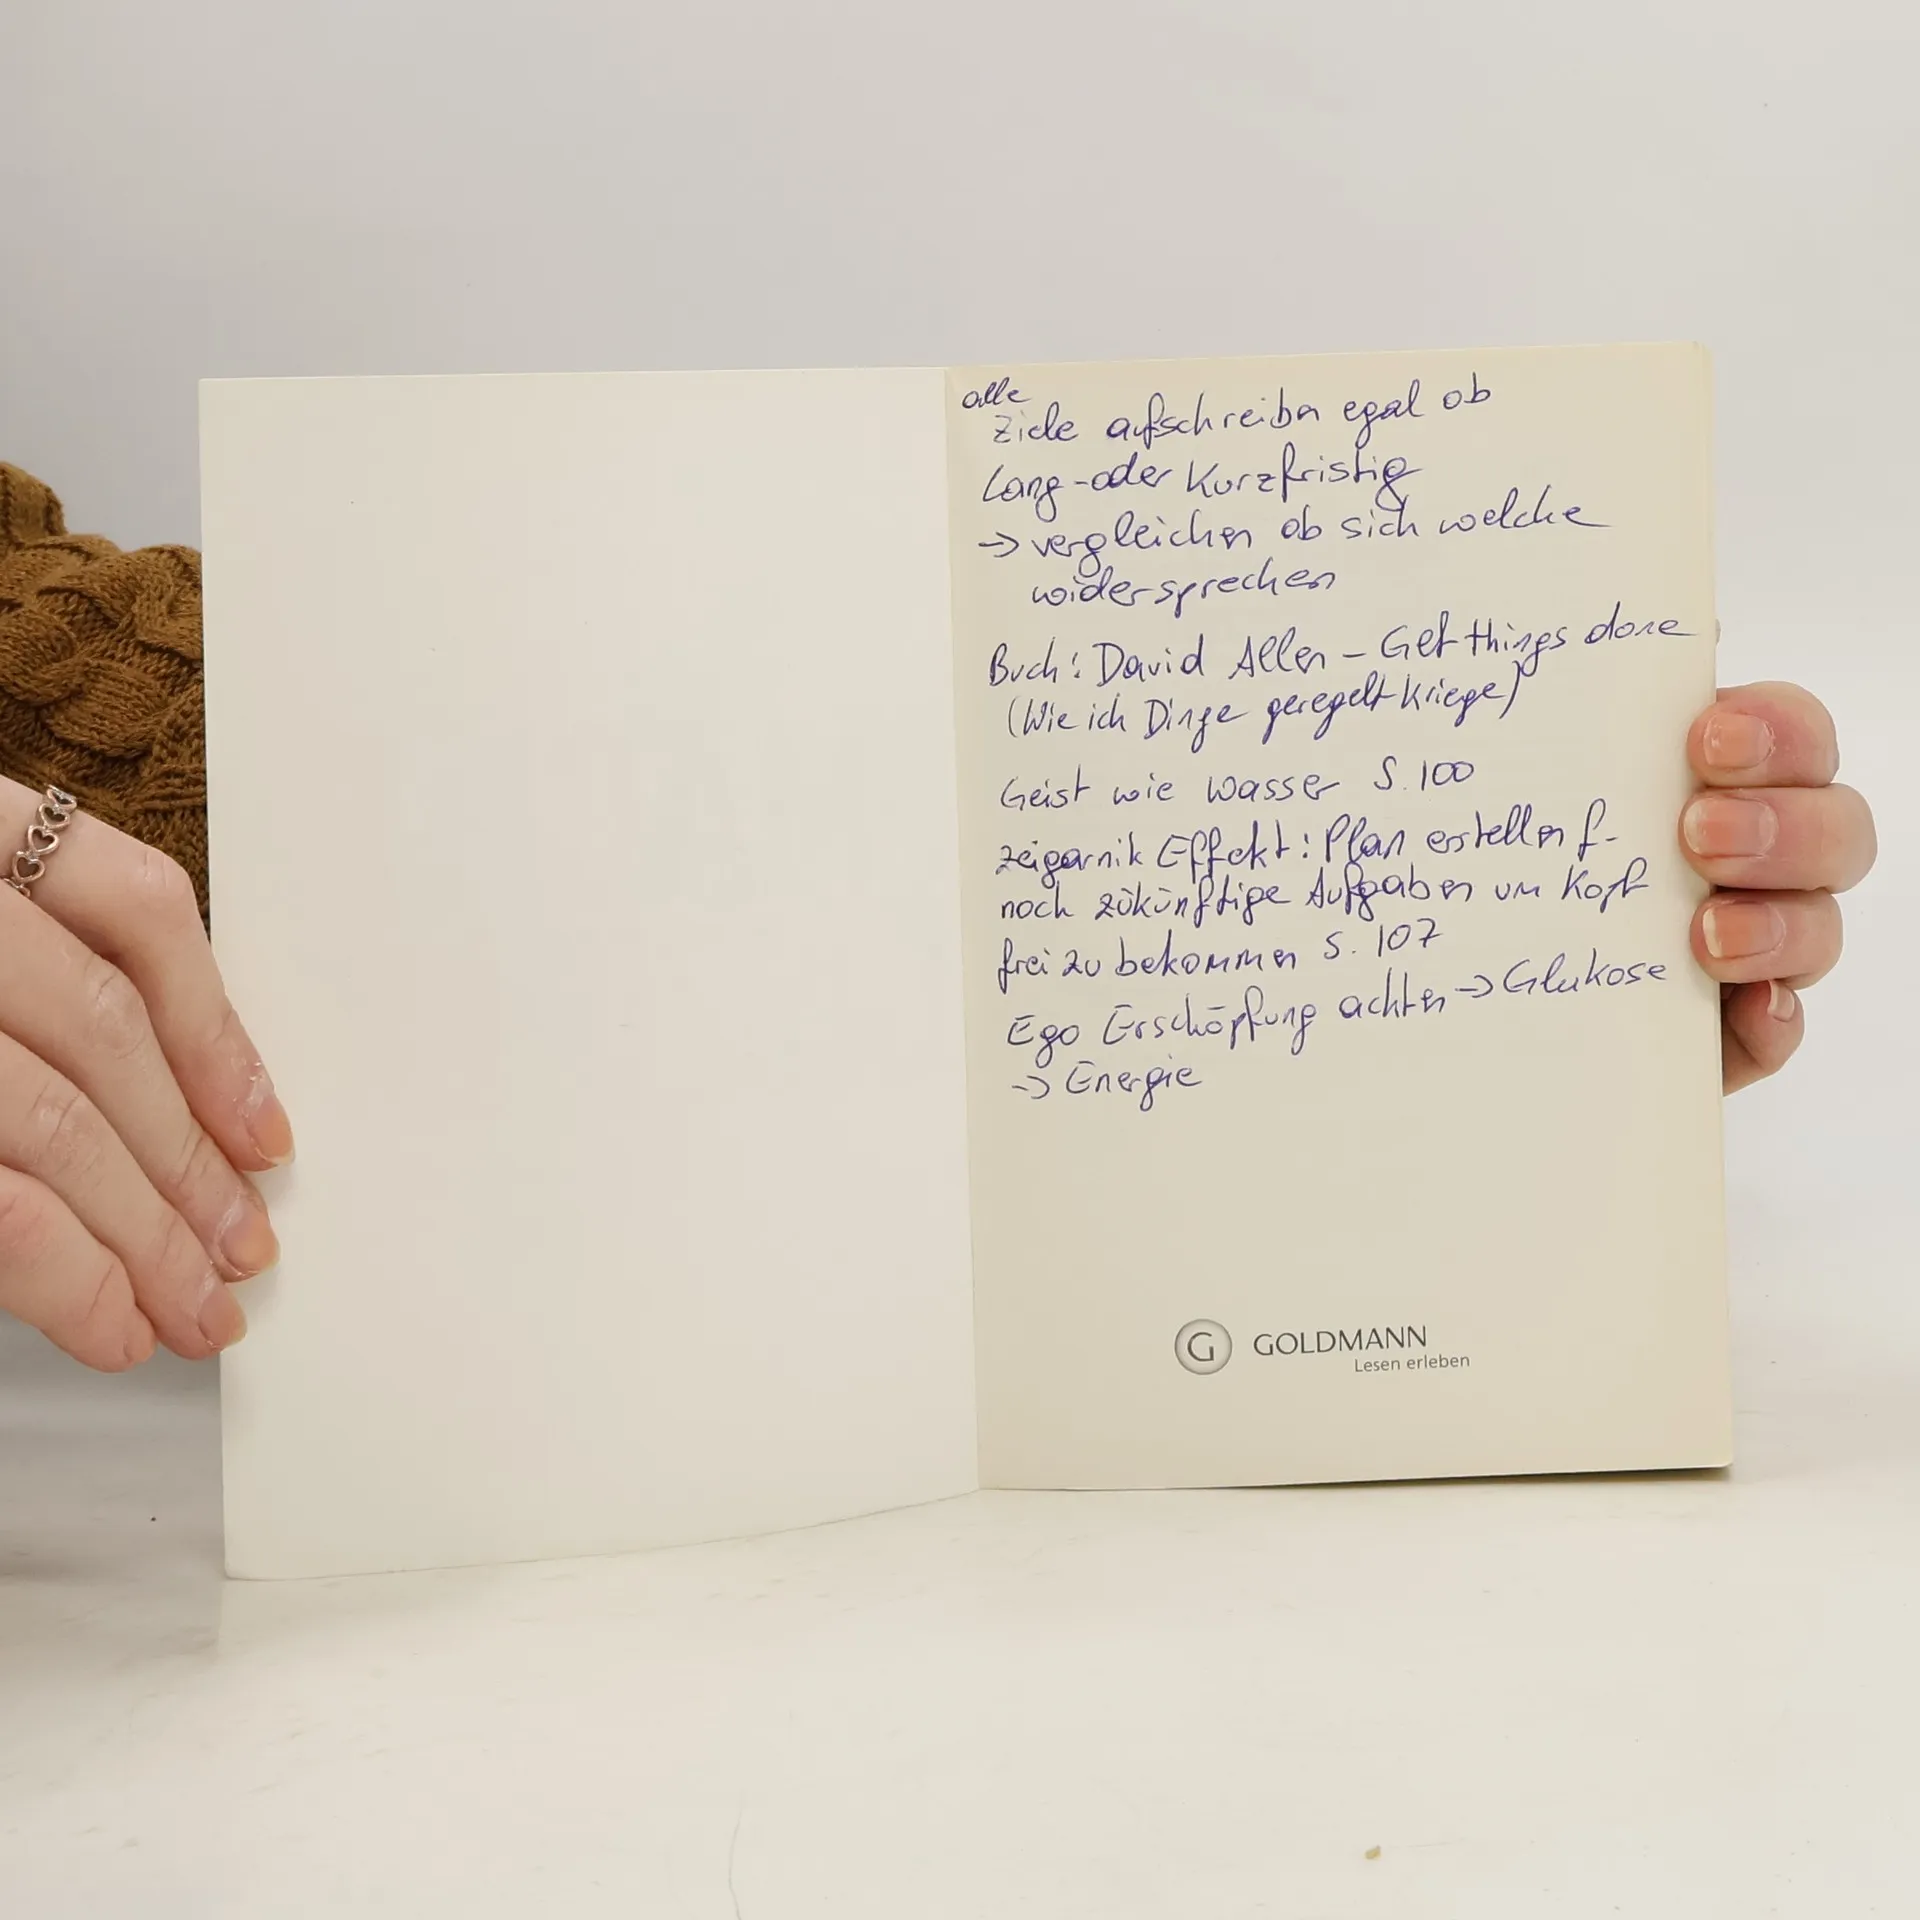 alle
Ziele aufschreiben egal ob
Lang-oder Kurzfristig
→ vergleichen ob sich welche
widersprechen
Buch: David Allen – Get things done
(Wie ich Dinge geregelt kriege)
Geist wie wasser S. 100
zeigarnik Effekt: Plan erstellen f-
noch zükünftige Aufgaben um Kopf
frei zu bekommen S. 107
Ego Erschöpfung achten → Glukose
→ Energie
G GOLDMANN
Lesen erleben